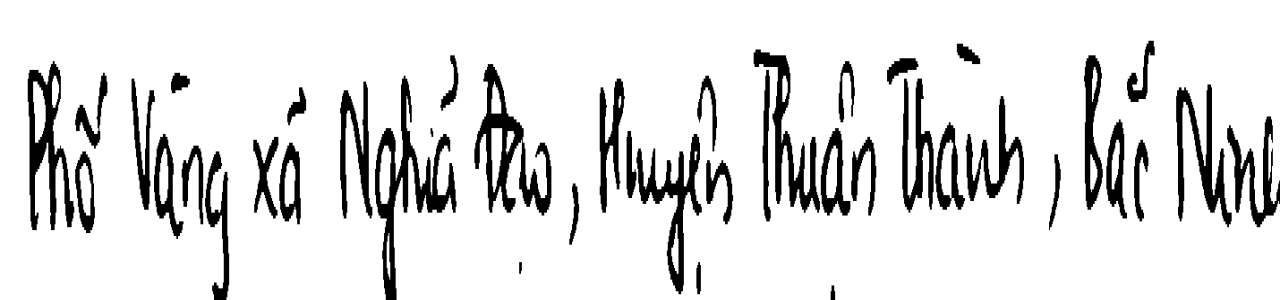 Phố Vàng xã Nghĩa Đạo, Huyện Thuận Thành, Bắc Ninh